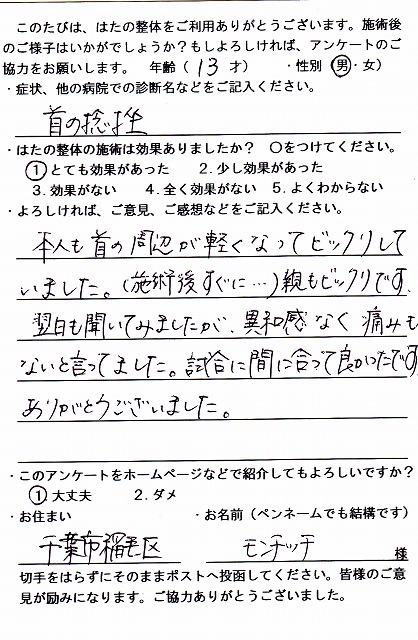 このたびは、はたの整体をご利用ありがとうございます。施術後
のご様子はいかがでしょうか？もしよろしければ、アンケートのご
協力をお願いします。　年齢（ 13 才）　・性別（男・女）
・症状、他の病院での診断名などをご記入ください。
首の捻挫
・はたの整体の施術は効果ありましたか？　〇をつけてください。
①とても効果があった　２.少し効果があった
３.効果がない　４.全く効果がない　５.よくわからない
・よろしければ、ご意見、ご感想などをご記入ください。
本人も首の周辺が軽くなってビックリして
いました。(施術後すぐに…)親もビックリです、
翌日も聞いてみましたが、異和感なく痛みも
ないと言ってました。試合に間に合って良かったです
ありがとうございました。
・このアンケートをホームページなどで紹介してもよろしいですか？
①大丈夫　２.ダメ
・お住まい　・お名前（ペンネームでも結構です）
千葉市稲毛区　モンチッチ　様
切手をはらずにそのままポストへ投函してください。皆様のご意
見が励みになります。ご協力ありがとうございました。